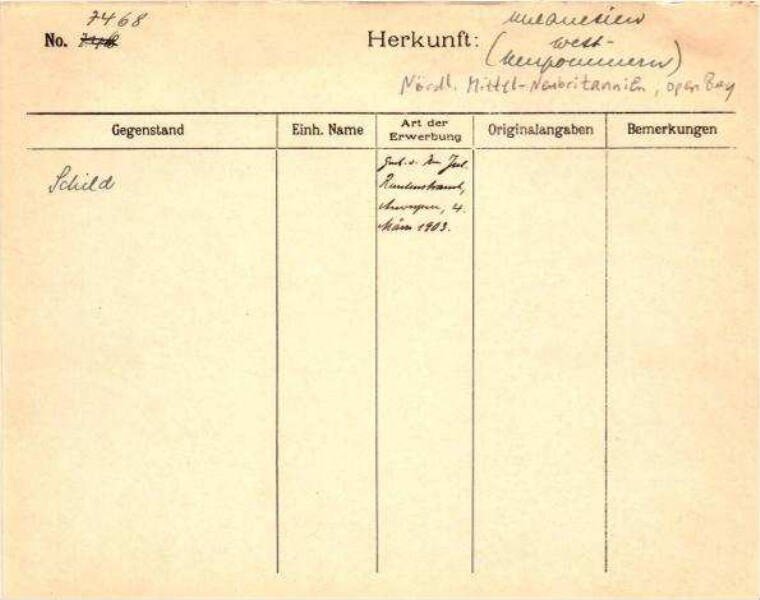 7468
No. 746
Herkunft: Melanesien
(West-
Neupommern)
Nördl. Mittel-Neubritannien, Open Bay
Gegenstand
Einh. Name
Art der
Erwerbung
Originalangaben
Bemerkungen
Schild
4.
März 1903.